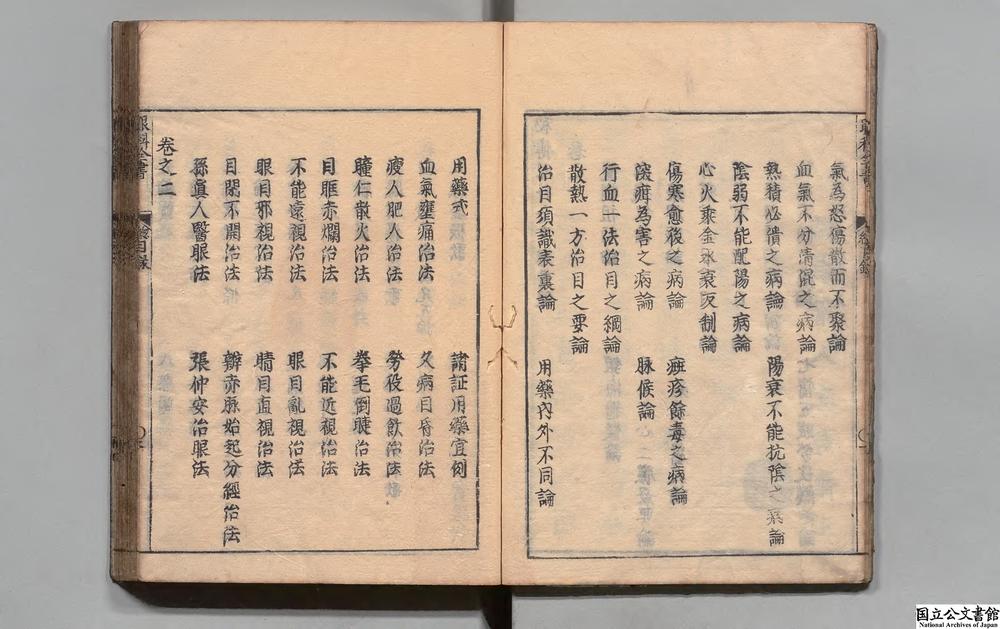 氣為怒傷散而不聚論
血氣不分清混之病論
熱積必潰之病論 陽衰不能抗陰之病論
陰弱不能配陽之病論
心火乘金水衰反制論
傷寒愈後之病論 癍疹餘毒之病論
深疳為害之病論 脉候論
行血一法治目之綱論
散熱一方治目之要論
治目須識表裏論 用藥內外不同論
用藥式 諸証用藥宜例
血氣壅痛治法 久病目昏治法
瘦人肥人治法 勞役過飲治法
瞳仁散火治法 拳毛倒睫治法
目眶赤爛治法 不能近視治法
不能遠視治法 眼目亂視治法
眼目邪視治法 睛目直視治法
目閉不開治法 辨赤脉始起分經治法
孫真人醫眼法 張仲安治眼法
卷之二
眼科全書 總目錄
国立公文書館
National Archives of Japan